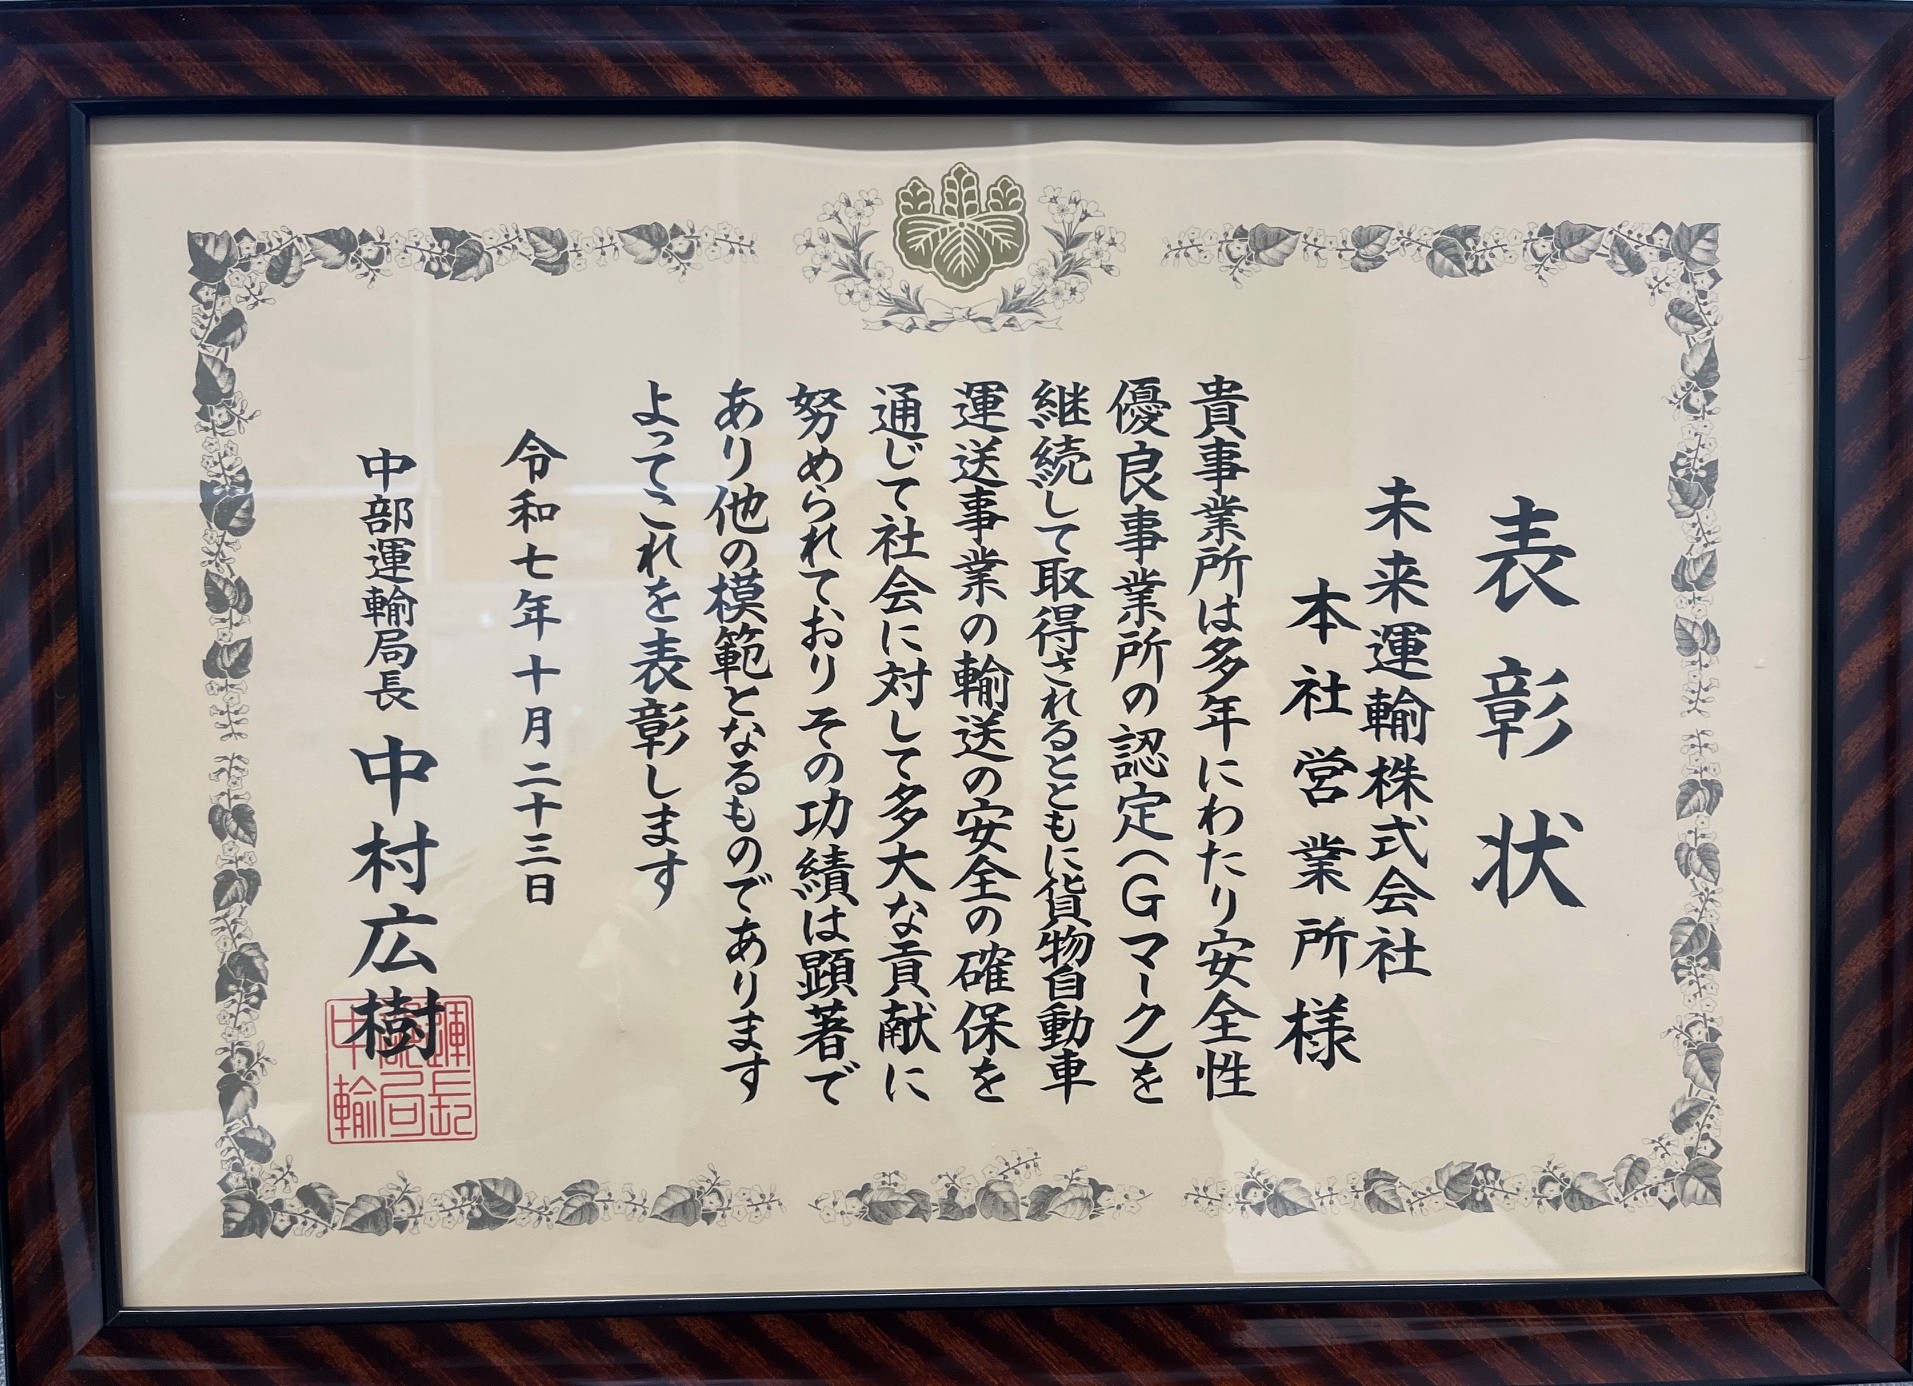 表彰状
未来運輸株式会社
本社営業所様
貴事業所は多年にわたり安全性
優良事業所の認定(Gマーク)を
継続して取得されるとともに貨物自動車
運送事業の輸送の安全の確保を
通じて社会に対して多大な貢献に
努められておりその功績は顕著で
あり他の模範となるものであります
よってこれを表彰します
令和七年十月二十三日
中部運輸局長 中村広樹